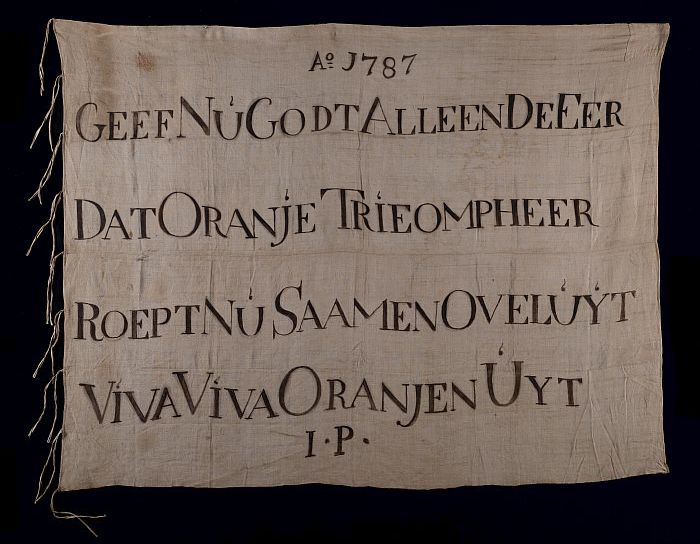 Aº J787
GEEF NÚ GODT ALLEEN DE EER
DAT ORANJE TRIEOMPHEER
ROEPT NÚ SAAMEN OVELÚYT
VIVA VIVA ORANJEN ÚYT
I·P·